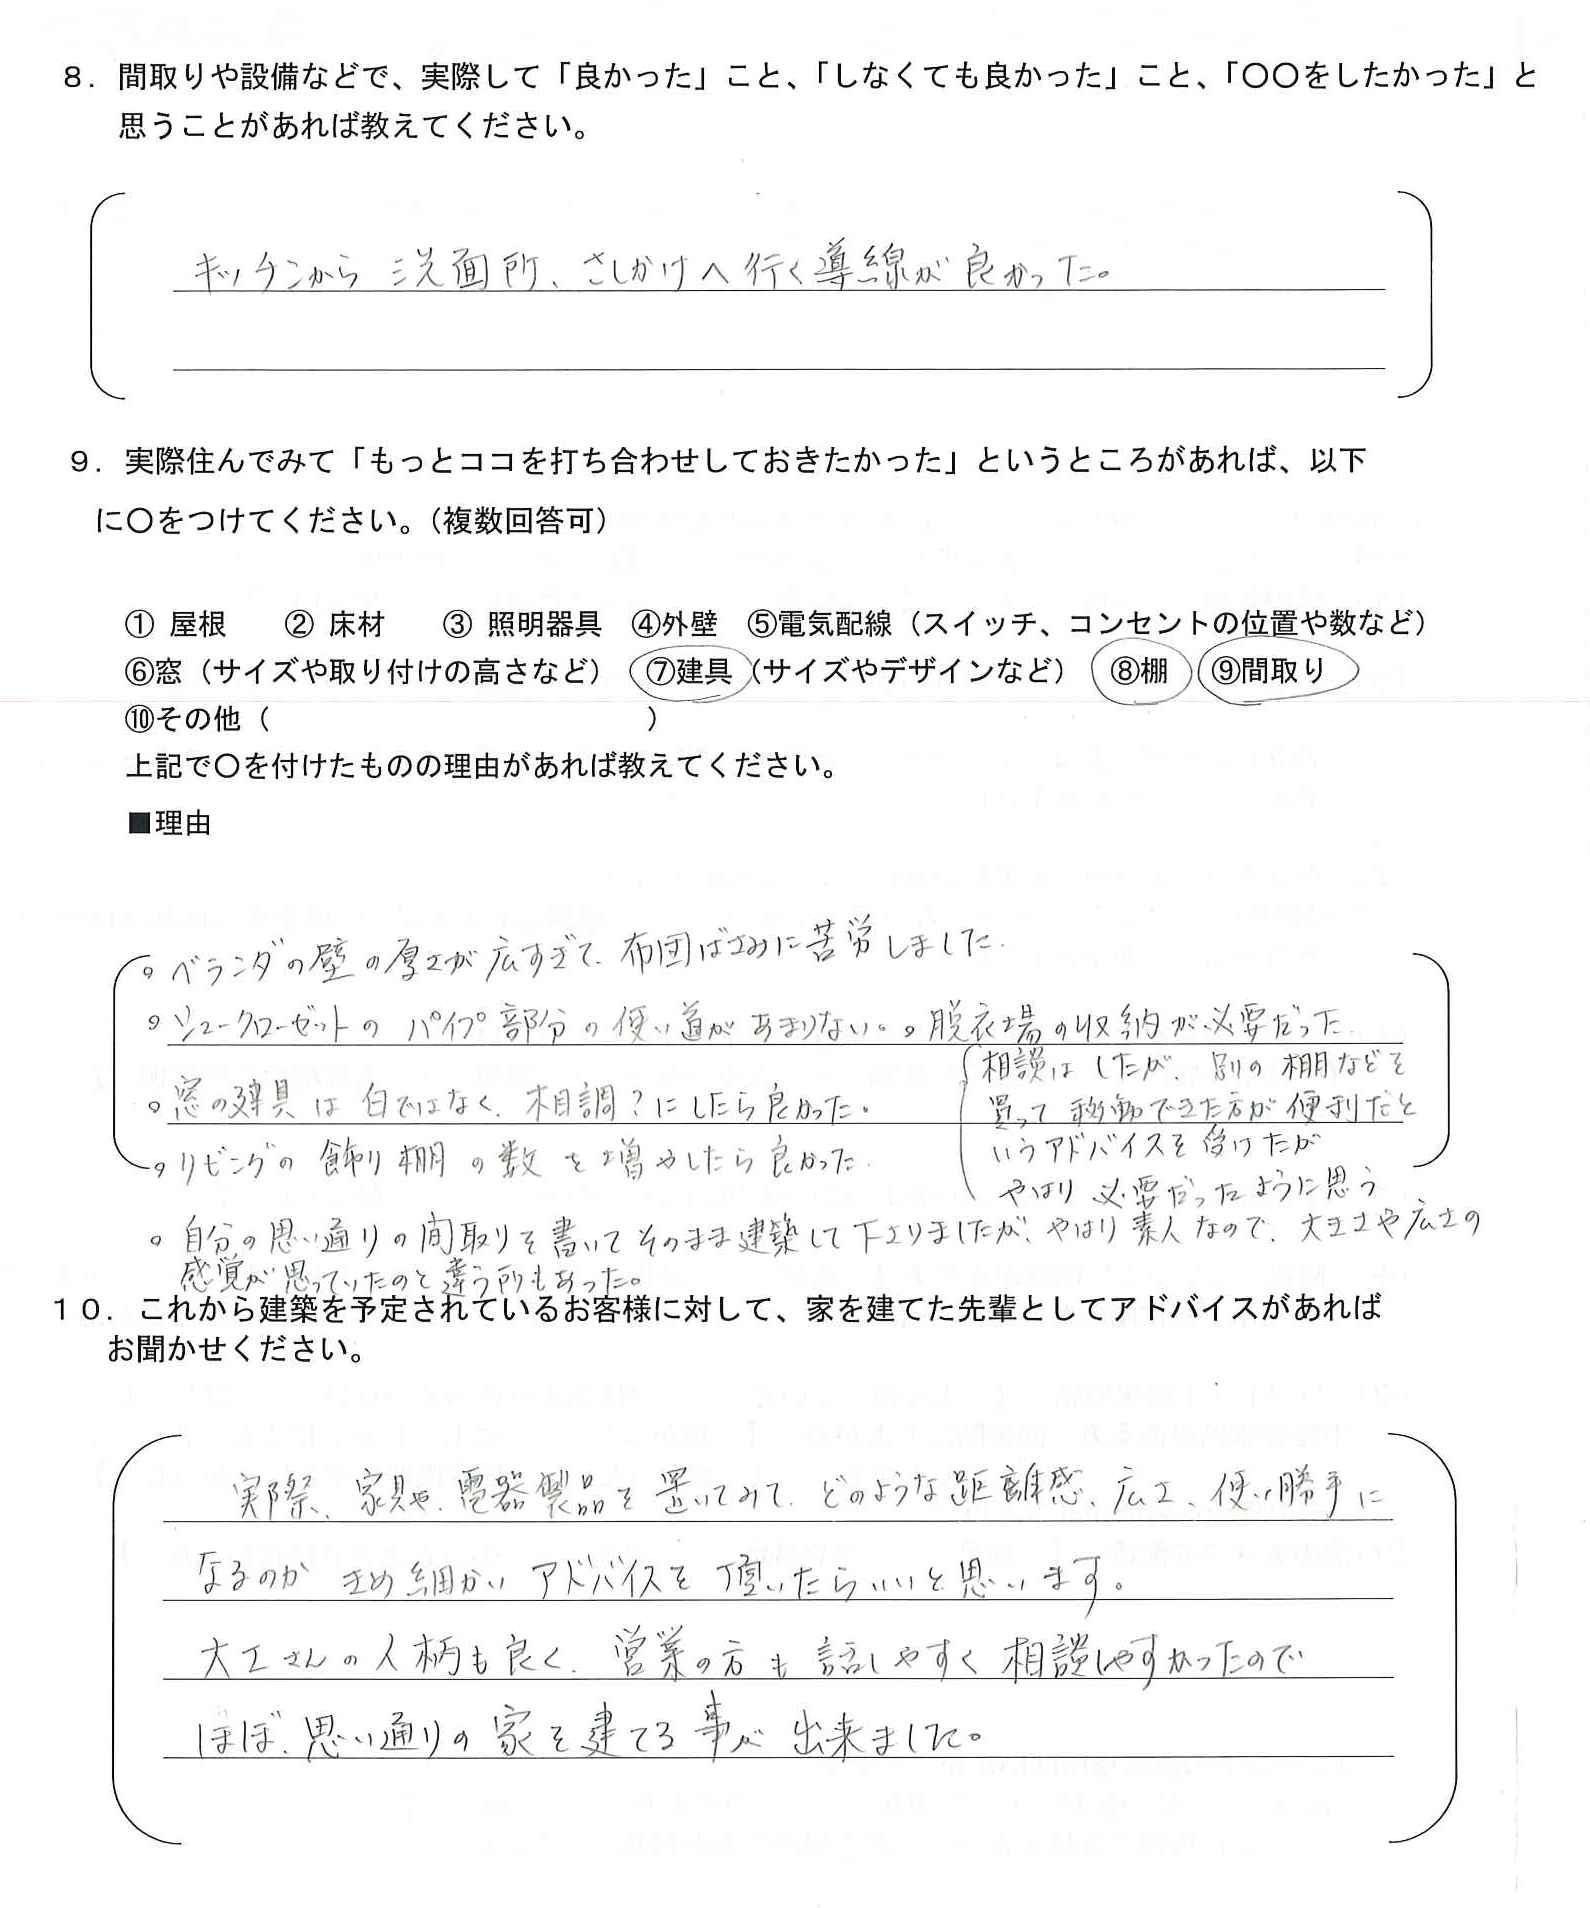 8．間取りや設備などで、実際して「良かった」こと、「しなくても良かった」こと、「〇〇をしたかった」と
思うことがあれば教えてください。
キッチンから洗面所、さしかけへ行く導線が良かった。
9．実際住んでみて「もっとココを打ち合わせしておきたかった」というところがあれば、以下
に〇をつけてください。（複数回答可）
① 屋根　② 床材　③ 照明器具　④外壁　⑤電気配線（スイッチ、コンセントの位置や数など）
⑥窓（サイズや取り付けの高さなど）　⑦建具（サイズやデザインなど）　⑧棚　⑨間取り
⑩その他（　　　　　　　　　　　　　）
上記で〇を付けたものの理由があれば教えてください。
■理由
。ベランダの壁の厚さが広すぎて、布団ばさみに苦労しました。
。シュークローゼットのパイプ部分の使い道があまりない。
。窓の建具は白ではなく、木目調？にしたら良かった。
。リビングの飾り棚の数を増やしたら良かった。
。脱衣場の収納が必要だった
相談はしたが、別の棚などを
買って移動できた方が便利だと
いうアドバイスを受けたが
やはり必要だったように思う
。自分の思い通りの間取りを書いてそのまま建築して下さりましたが、やはり素人なので、大きさや広さの
感覚が思っていたのと違う所もあった。
10．これから建築を予定されているお客様に対して、家を建てた先輩としてアドバイスがあれば
お聞かせください。
実際、家具や、電器製品を置いてみて、どのような距離感、広さ、使い勝手に
なるのかきめ細かいアドバイスを頂いたらいいと思います。
大工さんの人柄も良く、営業の方も話しやすく相談しやすかったので
ほぼ、思い通りの家を建てる事が出来ました。